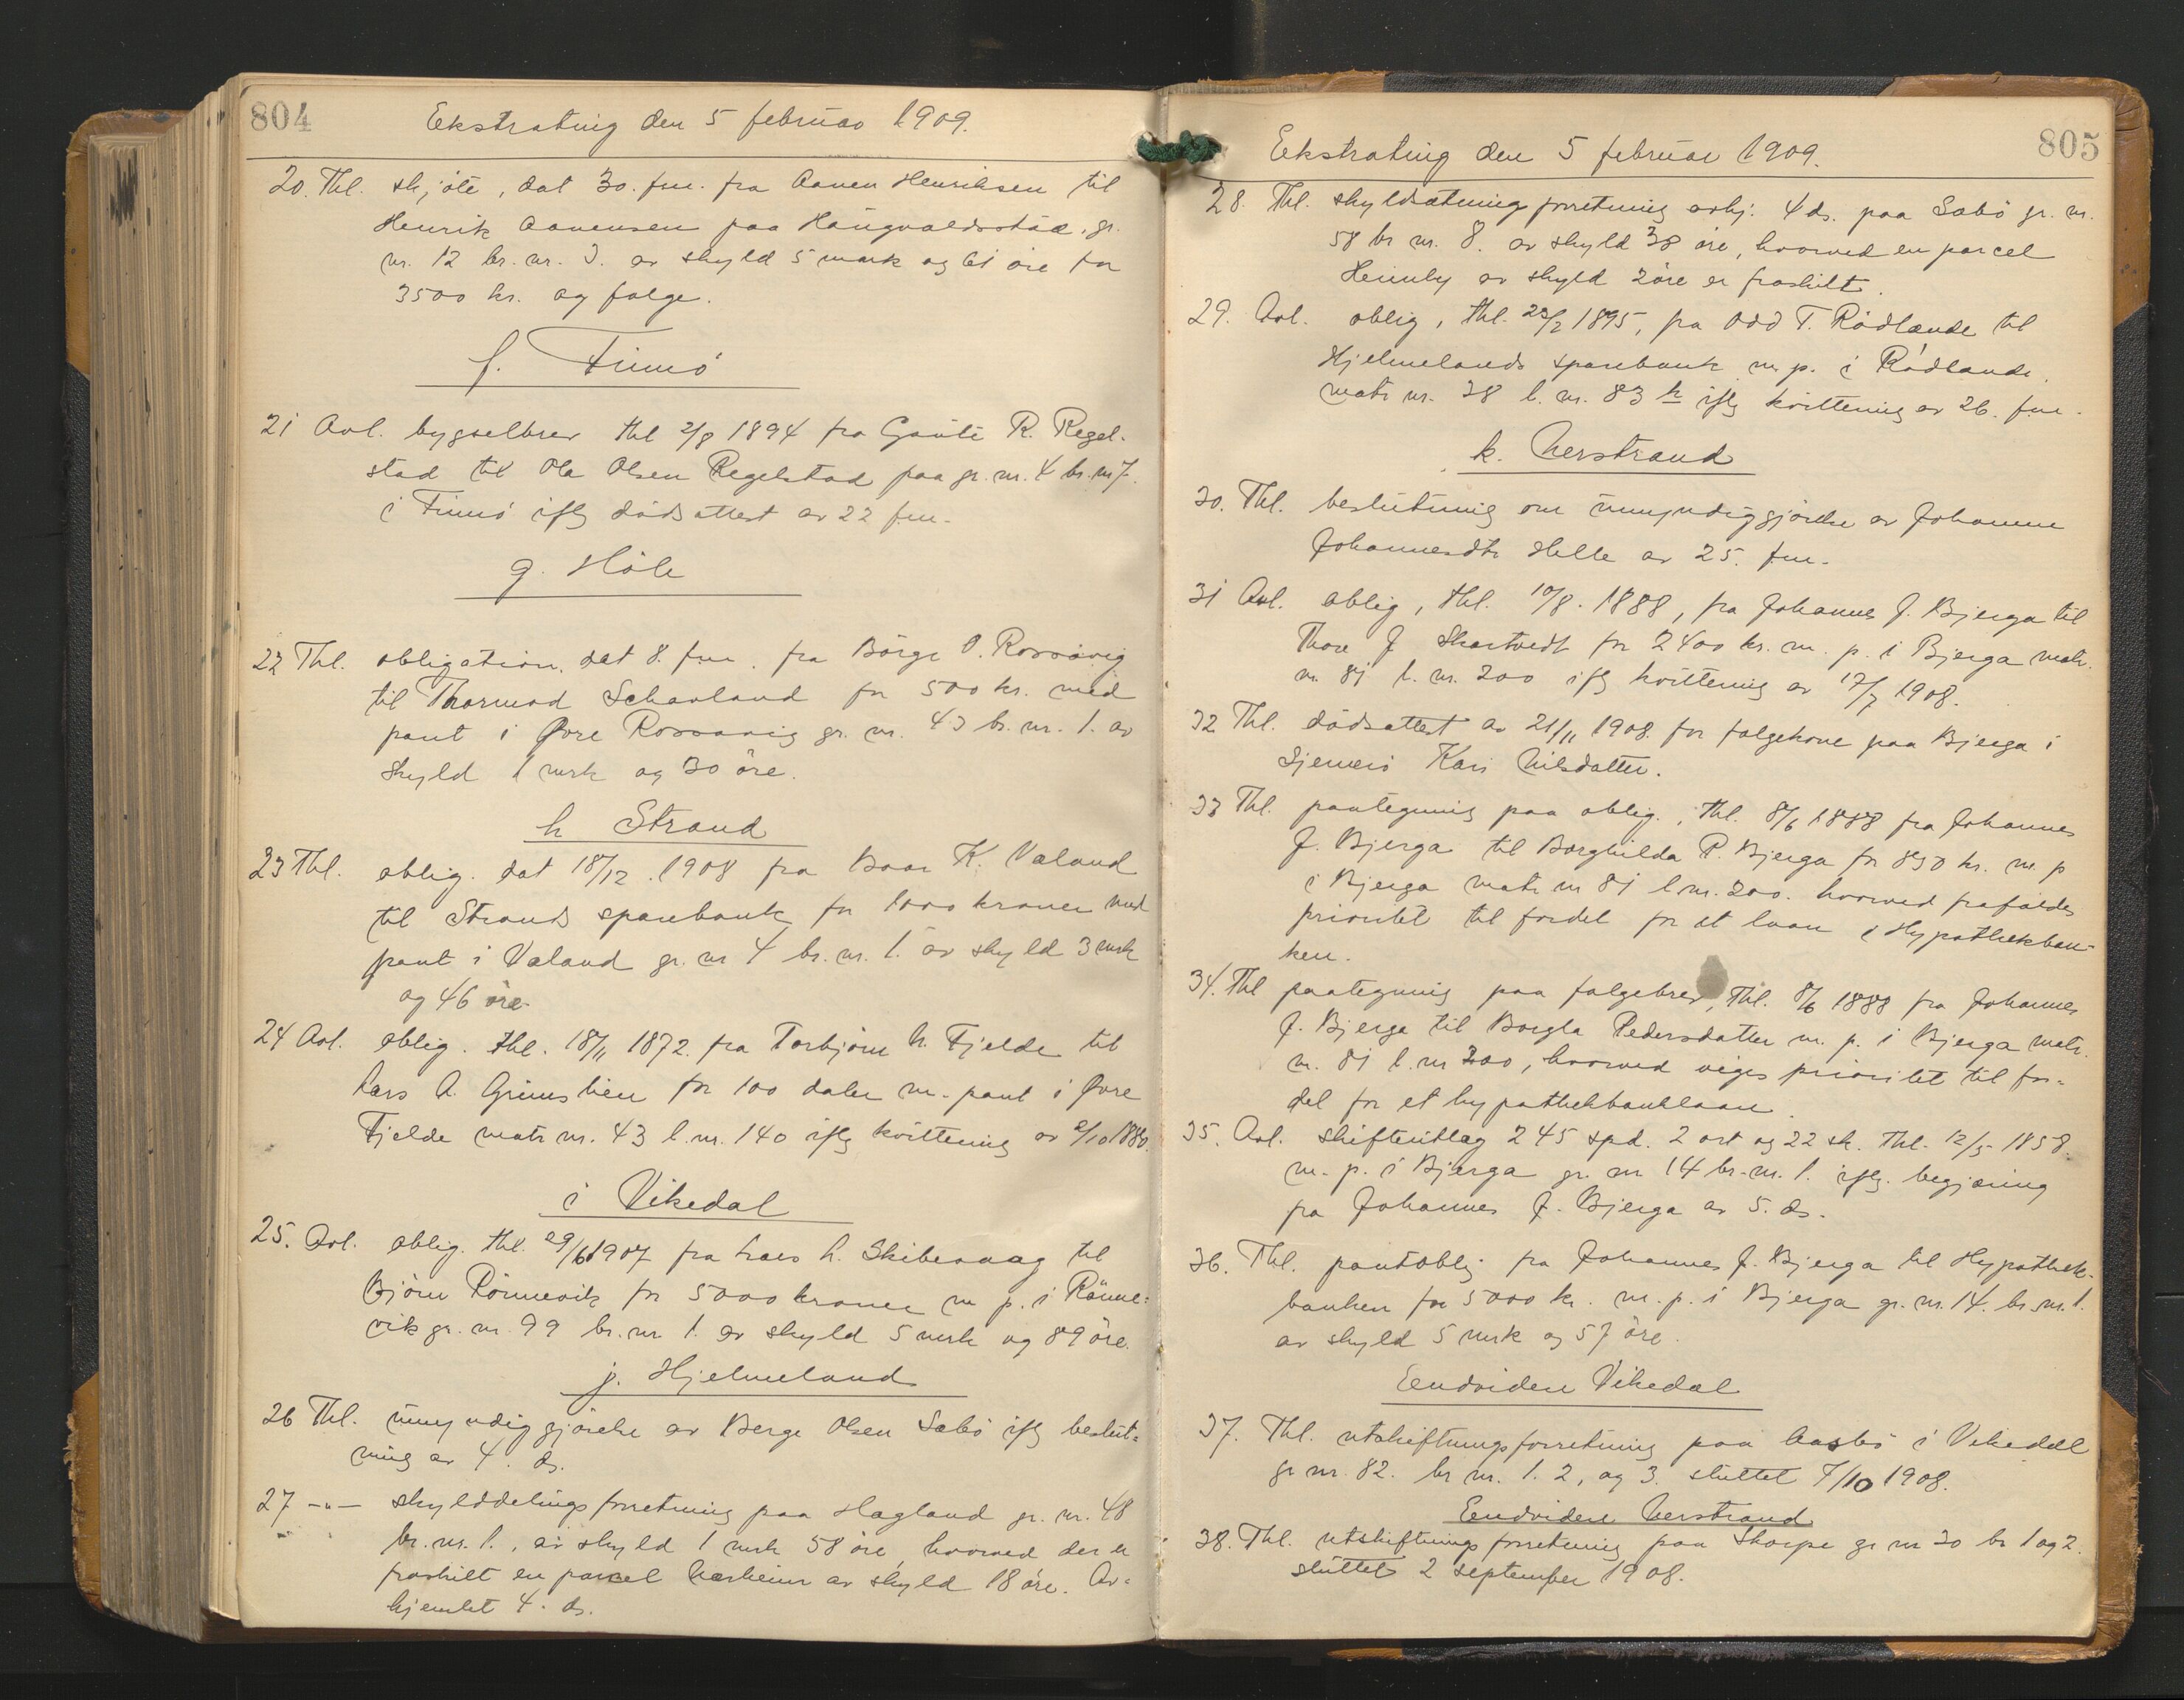 804
Ekstrating den 5 februar 1909.
20. Thl. skjöte, dat 30. f.m. fra Aanen Henriksen til
Henrik Aanensen paa Haugvaldsstad, gr.
nr. 12 br. nr. 3. av skyld 5 mark og 61 öre for
3500 kr. og folge.
f. Finnö
21 Avl. bygselbrev thl 2/8 1894 fra Gaute R. Regel-
stad til Ola Olsen Regelstad paa gr. nr. 4 br. nr 7.
i Finnö iflg dödsattest av 22 f.m.
g. Höle
22 Thl. obligation, dat 8. f.m. fra Börge O. Rossavig
til Thormod Schanland for 500 kr. med
pant i Øvre Rossavig gr. nr. 43 br. nr. 1. av
skyld 1 mrk og 30 öre.
h Strand
23 Thl. oblig. dat 18/12. 1908 fra Baar K. Valand
til Strands sparebank for 1000 kroner med
pant i Valand gr. nr 4 br. nr. 1. av skyld 3 mrk
og 46 öre.
24 Avl. oblig. thl. 18/11 1872. fra Torbjörn h. Fjelde til
Lars A. Grimslien for 100 daler m. pant i Øvre
Fjelde matr nr. 43 l. nr. 140 iflg kvittering av 2/10 1880.
i Vikedal
25. Avl. oblig. thl. 29/6 1907 fra Lars L. Skibenaag til
Björn Rönnevik for 5000 kroner m p. i Rönne-
vik gr. nr. 99 br. nr 1. av skyld 5 mrk og 89 öre.
j. Hjelmeland
26 Thl. umyndiggjörelse av Berge Olsen Sabö iflg beslut-
ning av 4. ds.
27 -"- skylddelingsforretning paa Hagland gr. nr. 48
br. nr. 1., av skyld 1 mrk 58 öre, hvorved der er
fraskilt en parcel Aarheim av skyld 18 öre. Av-
hjemlet 4. ds.
805
Ekstrating den 5 februar 1909.
28. Thl. skyldsætningsforretning avhj. 4 ds. paa Sabö gr. nr.
58 br nr. 8. av skyld 38 öre, hvorved en parcel
Heimby av skyld 2 öre er fraskilt.
29. Avl. oblig, thl. 23/2 1895, fra Odd T. Rödlande til
Hjelmelands sparebank m. p. i Rödlande,
matr nr. 38 l. nr. 83 h iflg kvittering av 26. f.m.
k. Nerstrand
30. Thl. beslutning om umyndiggjörelse av Johanne
Johannesdtr Helle av 25. f.m.
31 Avl. oblig, thl. 10/8. 1888, fra Johannes J. Bjerga til
Thore J Skartvedt for 2400 kr. m. p. i Bjerga matr.
nr. 81 l. nr. 200 iflg kvittering av 17/7 1908.
32 Thl. dödsattest av 21/11 1908. for folgekone paa Bjerga i
Sjernerö Kari Nilsdatter.
33 Thl. paategning paa oblig., thl. 8/6 1888 fra Johannes
J. Bjerga til Borghilda P. Bjerga for 890 kr. m. p
i Bjerga matr nr 81 l. nr. 200. hvorved frafaldes
prioritet til fordel for et laan i Hypothekban-
ken.
34. Thl paategning paa folgebrev, thl. 8/6 1888 fra Johannes
J. Bjerga til Borgla Pedersdatter m. p. i Bjerga matr.
nr. 81 l. nr 200, hvorved viges prioritet til for-
del for et hypothekbanklaan.
35. Avl. skifteutlæg 245 spd. 2 ort og 22 sk. thl. 12/5 1858.
m. p. i Bjerga gr. nr 14 br. nr. 1. iflg. begjæring
fra Johannes J. Bjerga av 5. ds.
36. Thl. pantoblig fra Johannes J. Bjerga til Hypothek-
banken for 5000 kr. m. p. i Bjerga gr. nr. 14. br. nr. 1.
av skyld 5 mrk og 57 öre.
Endvidere Vikedal
37. Thl. utskiftningsforretning paa Aasbö i Vikedal
gr nr. 82. br nr. 1. 2, og 3. sluttet 7/10 1908.
Endvidere Nerstrand
38. Thl. utskiftningsforretning paa Skorpe gr nr 20 br 1 og 2.
sluttet 2 september 1908.